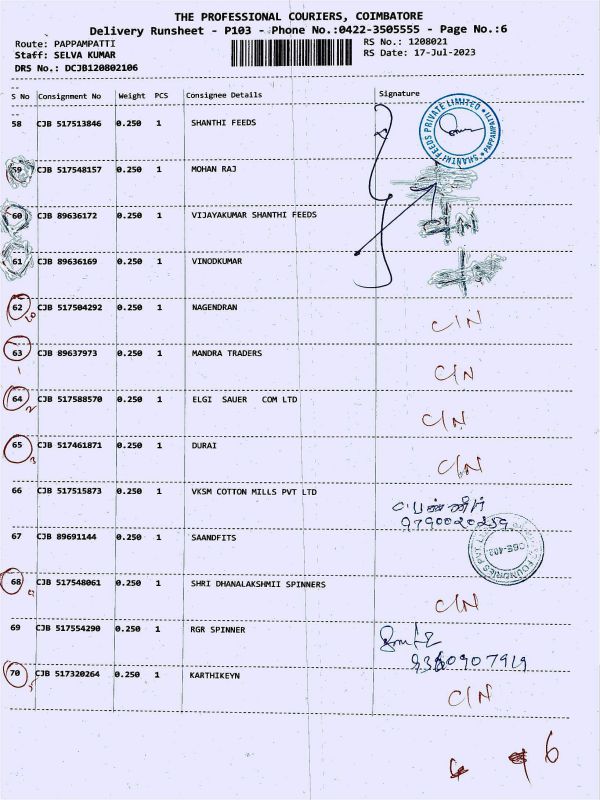 THE PROFESSIONAL COURIERS, COIMBATORE
Delivery Runsheet - P103 - Phone No.:0422-3505555 - Page No.:6
Route: PAPPAMPATTI RS No.: 1208021
Staff: SELVA KUMAR RS Date: 17-Jul-2023
DRS No.: DCJB120802106
S No Consignment No Weight PCS Consignee Details Signature
58 CJB 517513846 0.250 1 SHANTHI FEEDS
SHANTHI FEEDS PRIVATE LIMITED PAPPAMPATTI
59 CJB 517548157 0.250 1 MOHAN RAJ
60 CJB 89636172 0.250 1 VIJAYAKUMAR SHANTHI FEEDS
61 CJB 89636169 0.250 1 VINODKUMAR
62 CJB 517504292 0.250 1 NAGENDRAN C/N
63 CJB 89637973 0.250 1 MANDRA TRADERS C/N
1
64 CJB 517588570 0.250 1 ELGI SAUER COM LTD C/N
2
65 CJB 517461871 0.250 1 DURAI C/N
3
66 CJB 517515873 0.250 1 VKSM COTTON MILLS PVT LTD
9790020259
67 CJB 89691144 0.250 1 SAANDFITS
CBE-402
68 CJB 517548061 0.250 1 SHRI DHANALAKSHMII SPINNERS C/N
69 CJB 517554290 0.250 1 RGR SPINNER
9360907919
70 CJB 517320264 0.250 1 KARTHIKEYN C/N
6